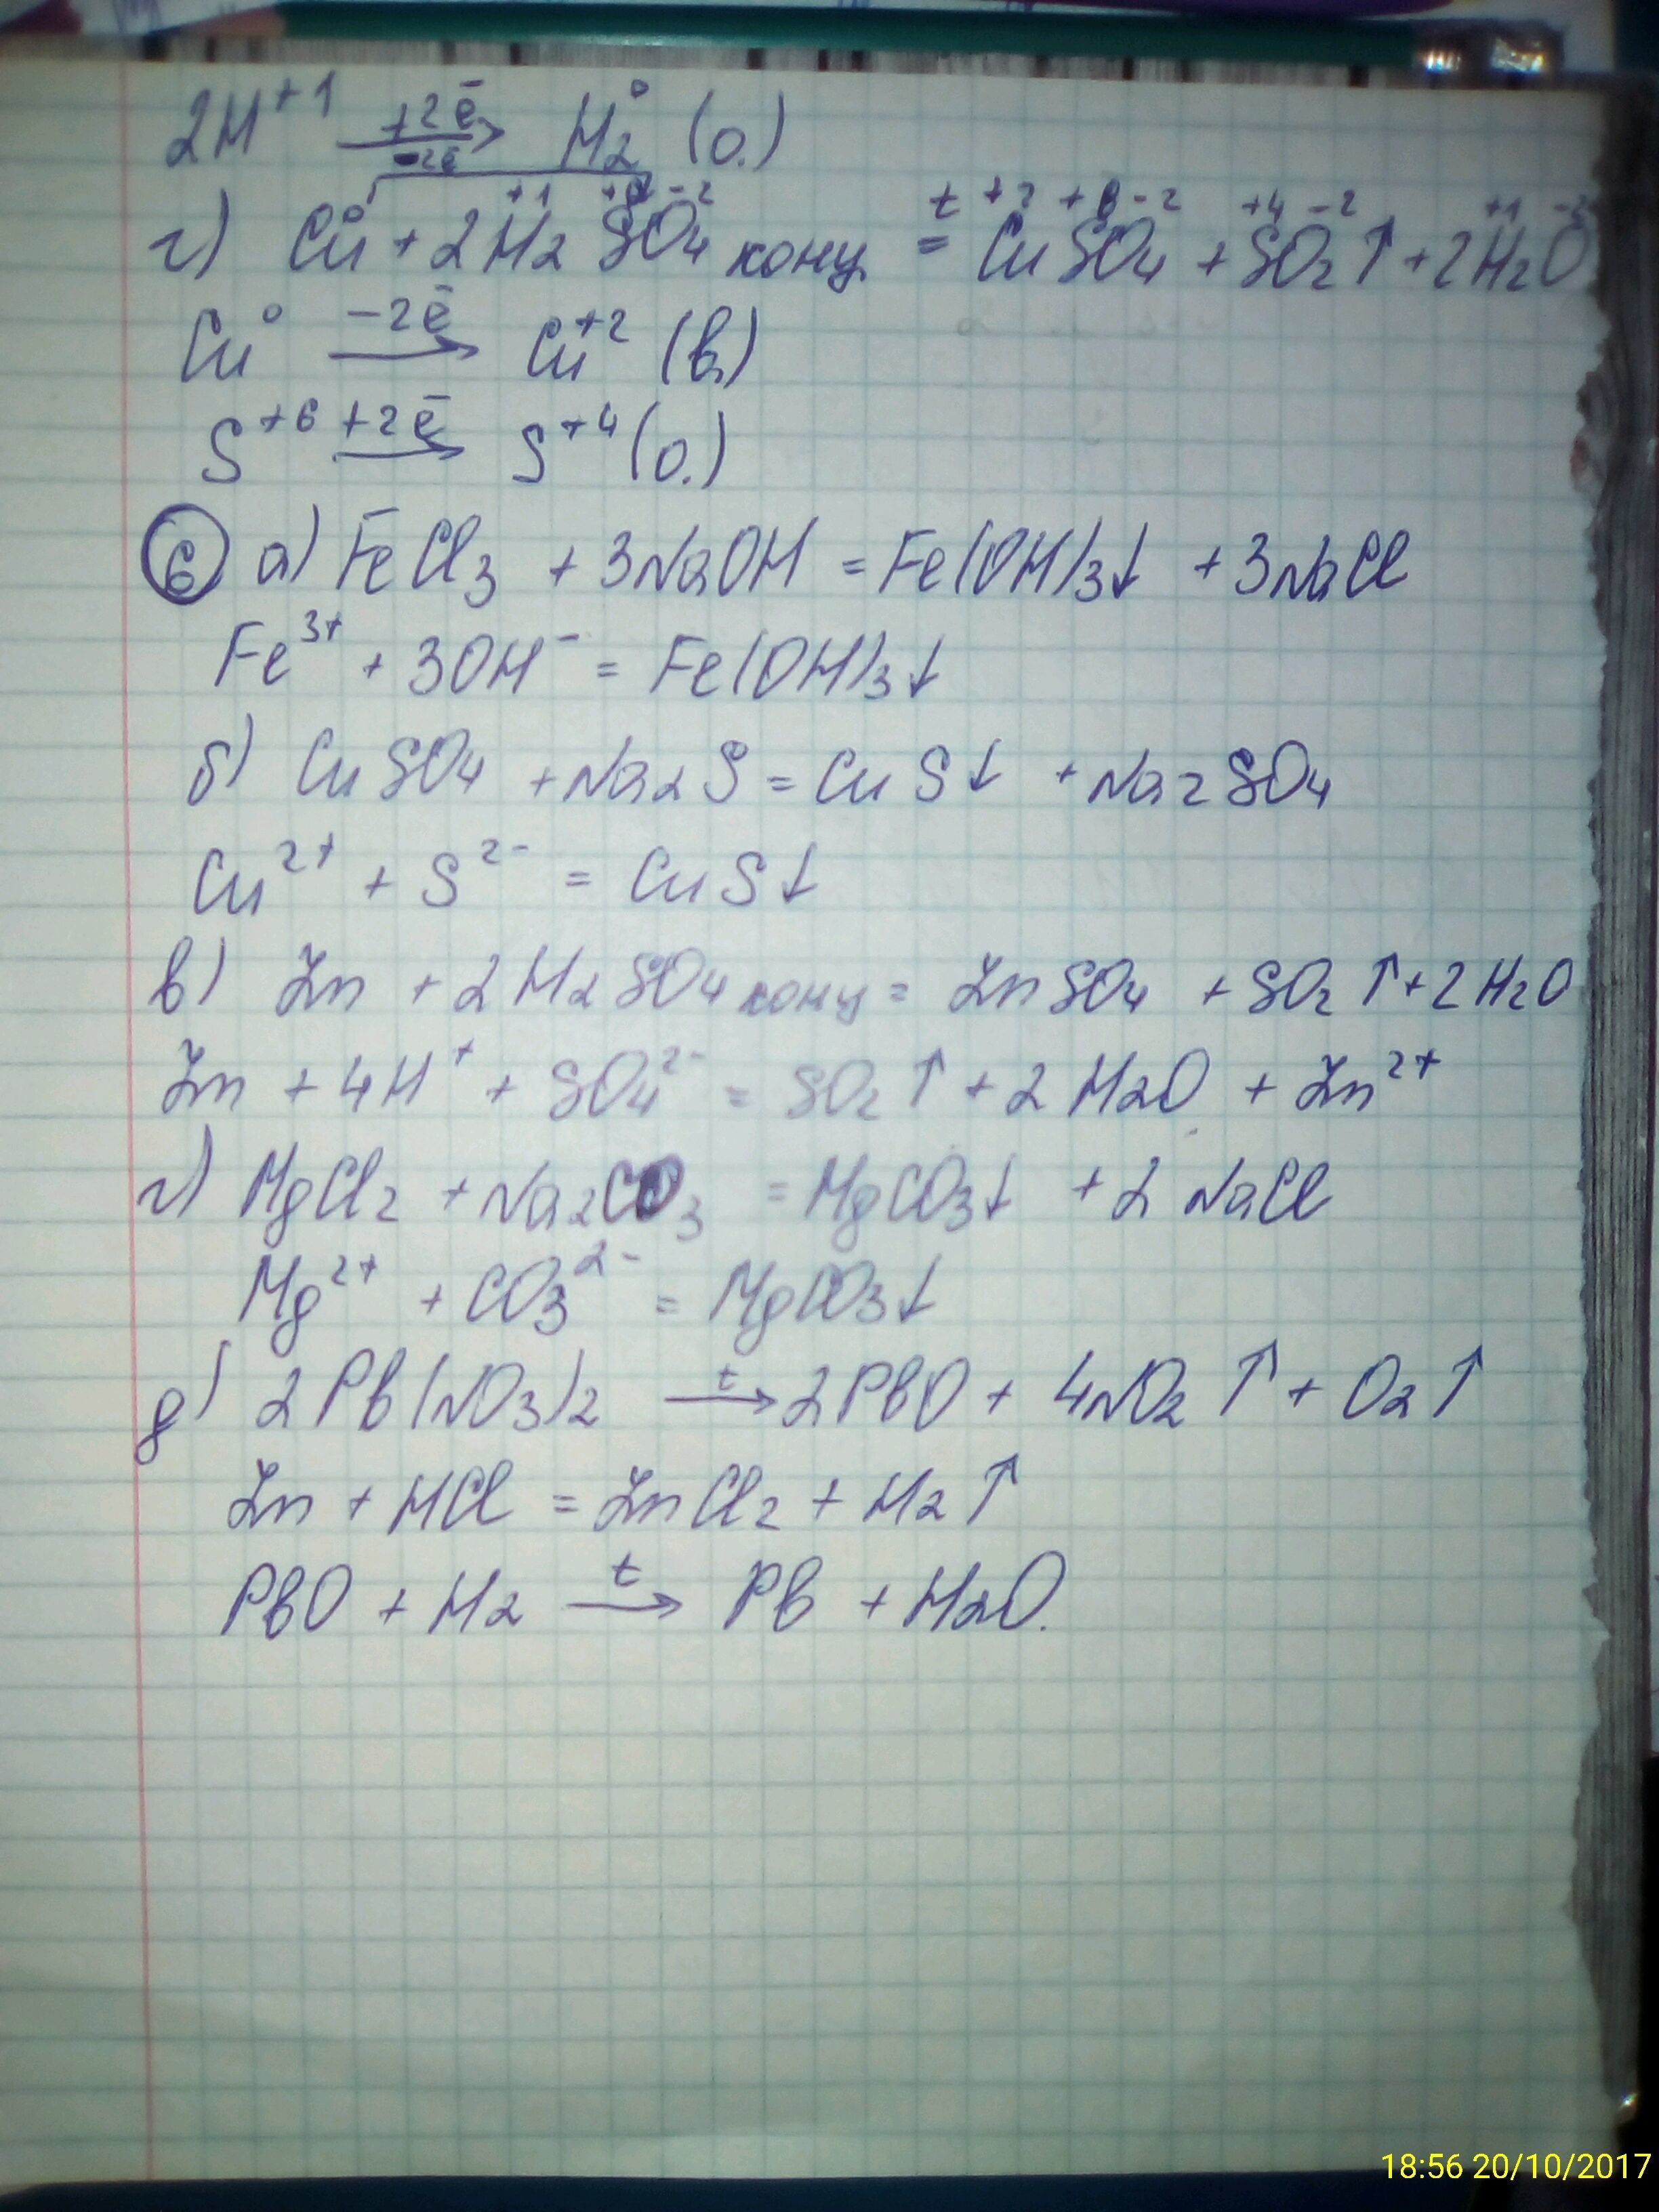 2H⁺¹ +2ē → H₂⁰ (о.)
-2ē
г) Cu⁰ + 2H₂⁺¹S⁺⁶O₄⁻² конц t = Cu⁺²S⁺⁶O₄⁻² + S⁺⁴O₂⁻²↑ + 2H₂⁺¹O⁻²
Cu⁰ -2ē → Cu⁺² (в.)
S⁺⁶ +2ē → S⁺⁴ (о.)
6 а) FeCl₃ + 3NaOH = Fe(OH)₃↓ + 3NaCl
Fe³⁺ + 3OH⁻ = Fe(OH)₃↓
б) CuSO₄ + Na₂S = CuS↓ + Na₂SO₄
Cu²⁺ + S²⁻ = CuS↓
в) Zn + 2H₂SO₄ конц = ZnSO₄ + SO₂↑ + 2H₂O
Zn + 4H⁺ + SO₄²⁻ = SO₂↑ + 2H₂O + Zn²⁺
г) MgCl₂ + Na₂CO₃ = MgCO₃↓ + 2NaCl
Mg²⁺ + CO₃²⁻ = MgCO₃↓
д) 2Pb(NO₃)₂ t → 2PbO + 4NO₂↑ + O₂↑
Zn + HCl = ZnCl₂ + H₂↑
PbO + H₂ t → Pb + H₂O.
18:56 20/10/2017